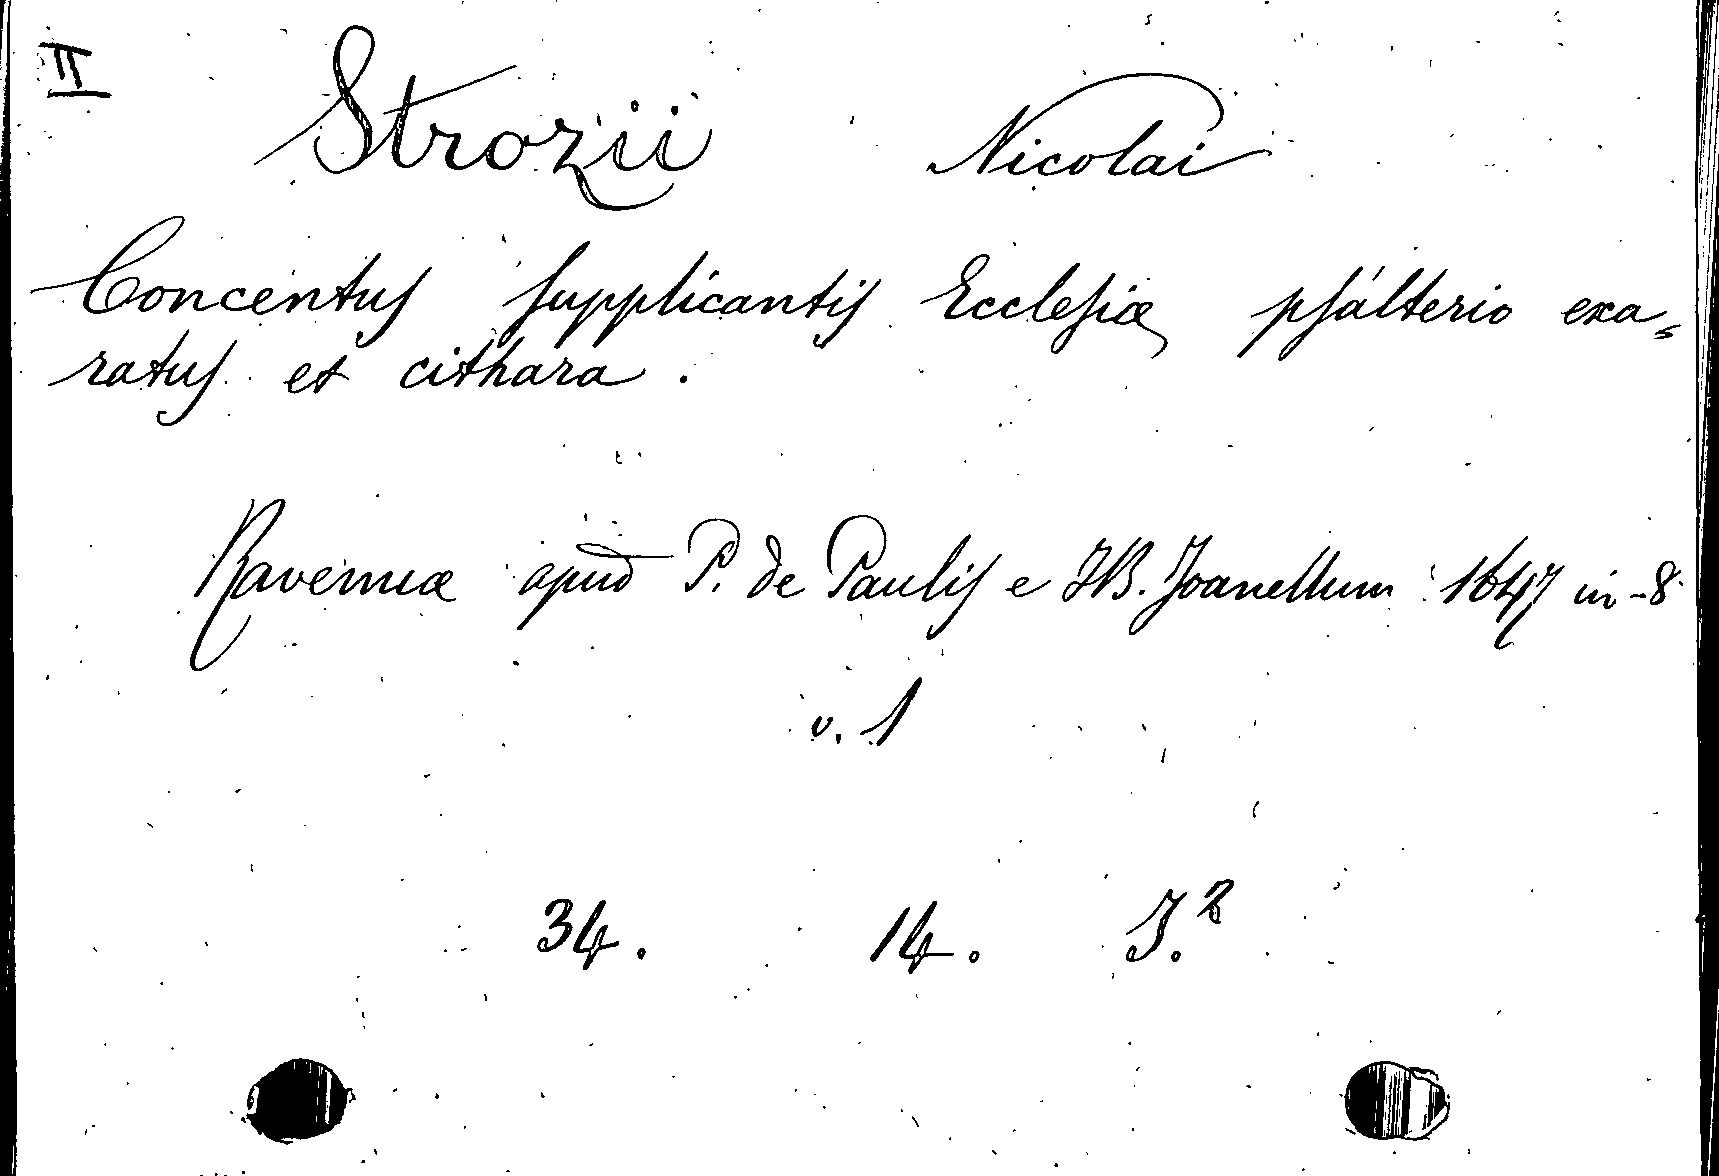 II
Strozii Nicolai
Concentus supplicantis Ecclesiæ psalterio exa=
ratus et cithara.
Ravennæ apud P. de Paulis e JB. Joanellum 1647 in-8
v. 1
34. 14. J.²